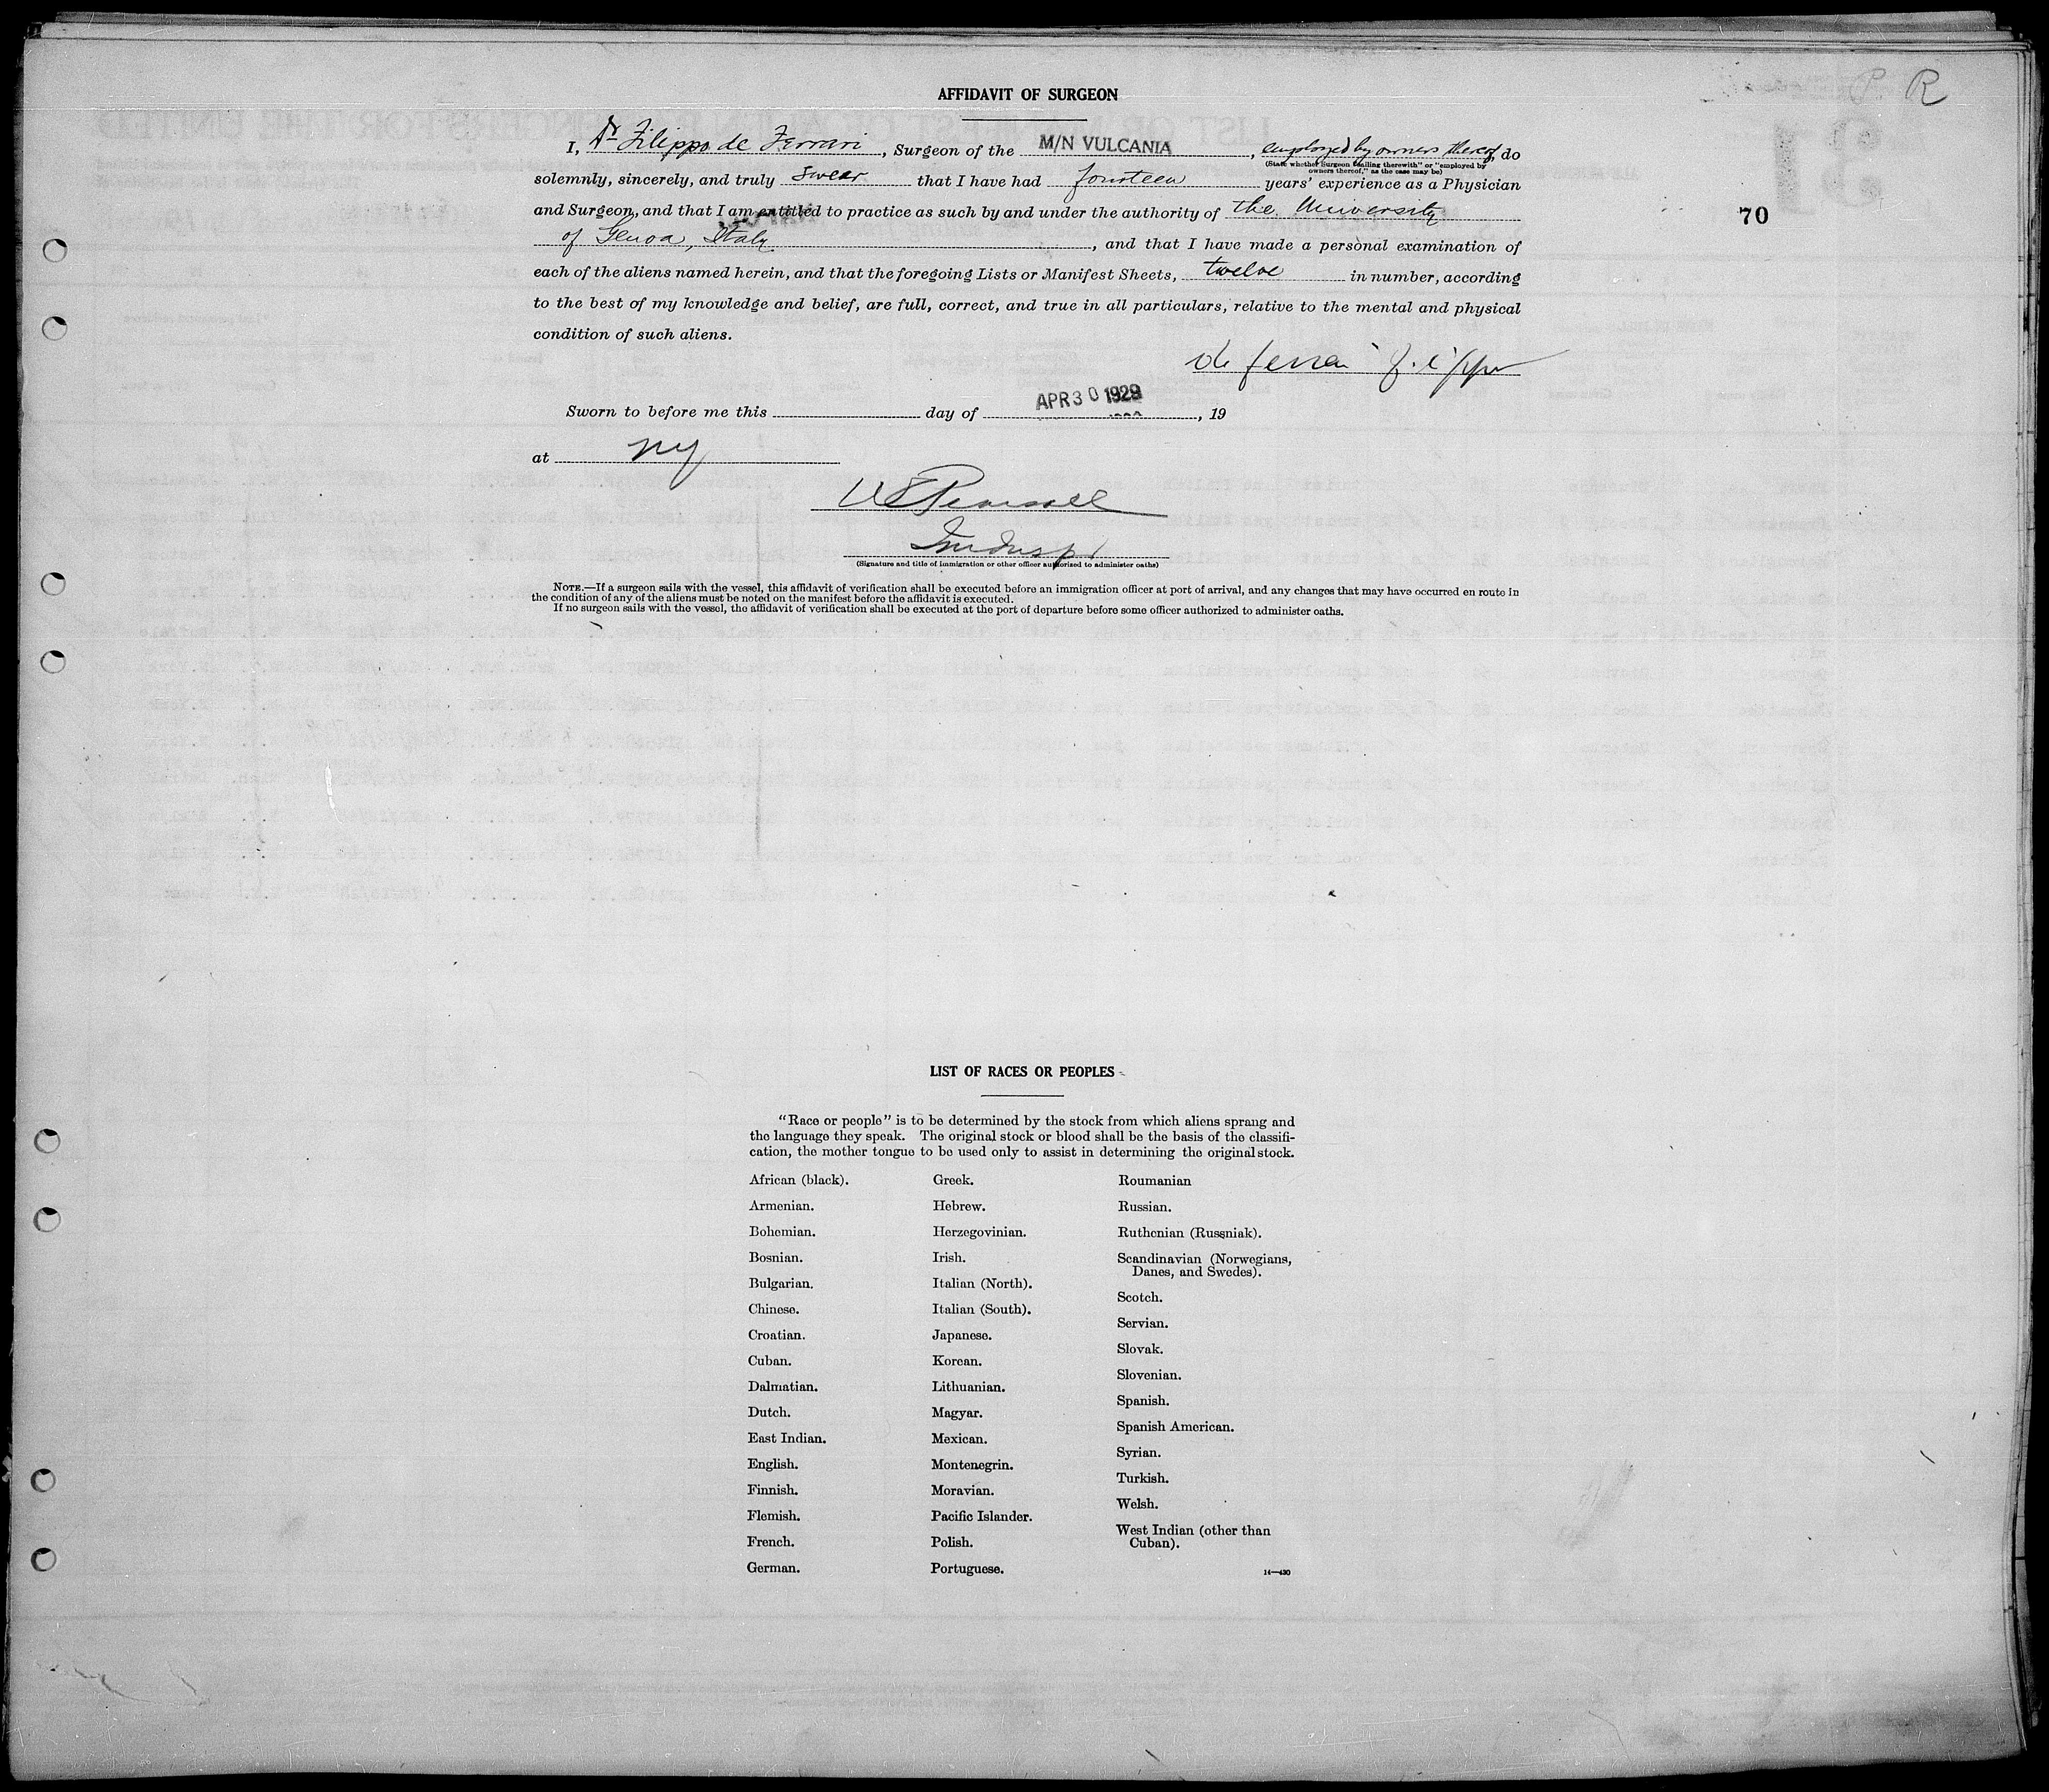 P R
AFFIDAVIT OF SURGEON
I, Dr Filippo de Ferrari, Surgeon of the M/N VULCANIA, employed by owners thereof, do
(State whether Surgeon "sailing therewith" or "employed by
owners thereof," as the case may be)
solemnly, sincerely, and truly swear that I have had fourteen years' experience as a Physician
and Surgeon, and that I am entitled to practice as such by and under the authority of the University
70
of Genoa, Italy, and that I have made a personal examination of
each of the aliens named herein, and that the foregoing Lists or Manifest Sheets, twelve in number, according
to the best of my knowledge and belief, are full, correct, and true in all particulars, relative to the mental and physical
condition of such aliens.
de ferrari filippo
Sworn to before me this day of APR 30 1929, 19
at NY
(Signature and title of immigration or other officer authorized to administer oaths)
NOTE.—If a surgeon sails with the vessel, this affidavit of verification shall be executed before an immigration officer at port of arrival, and any changes that may have occurred en route in
the condition of any of the aliens must be noted on the manifest before the affidavit is executed.
If no surgeon sails with the vessel, the affidavit of verification shall be executed at the port of departure before some officer authorized to administer oaths.
LIST OF RACES OR PEOPLES
"Race or people" is to be determined by the stock from which aliens sprang and
the language they speak. The original stock or blood shall be the basis of the classifi-
cation, the mother tongue to be used only to assist in determining the original stock.
African (black).
Armenian.
Bohemian.
Bosnian.
Bulgarian.
Chinese.
Croatian.
Cuban.
Dalmatian.
Dutch.
East Indian.
English.
Finnish.
Flemish.
French.
German.
Greek.
Hebrew.
Herzegovinian.
Irish.
Italian (North).
Italian (South).
Japanese.
Korean.
Lithuanian.
Magyar.
Mexican.
Montenegrin.
Moravian.
Pacific Islander.
Polish.
Portuguese.
Roumanian
Russian.
Ruthenian (Russniak).
Scandinavian (Norwegians,
Danes, and Swedes).
Scotch.
Servian.
Slovak.
Slovenian.
Spanish.
Spanish American.
Syrian.
Turkish.
Welsh.
West Indian (other than
Cuban).
14—430